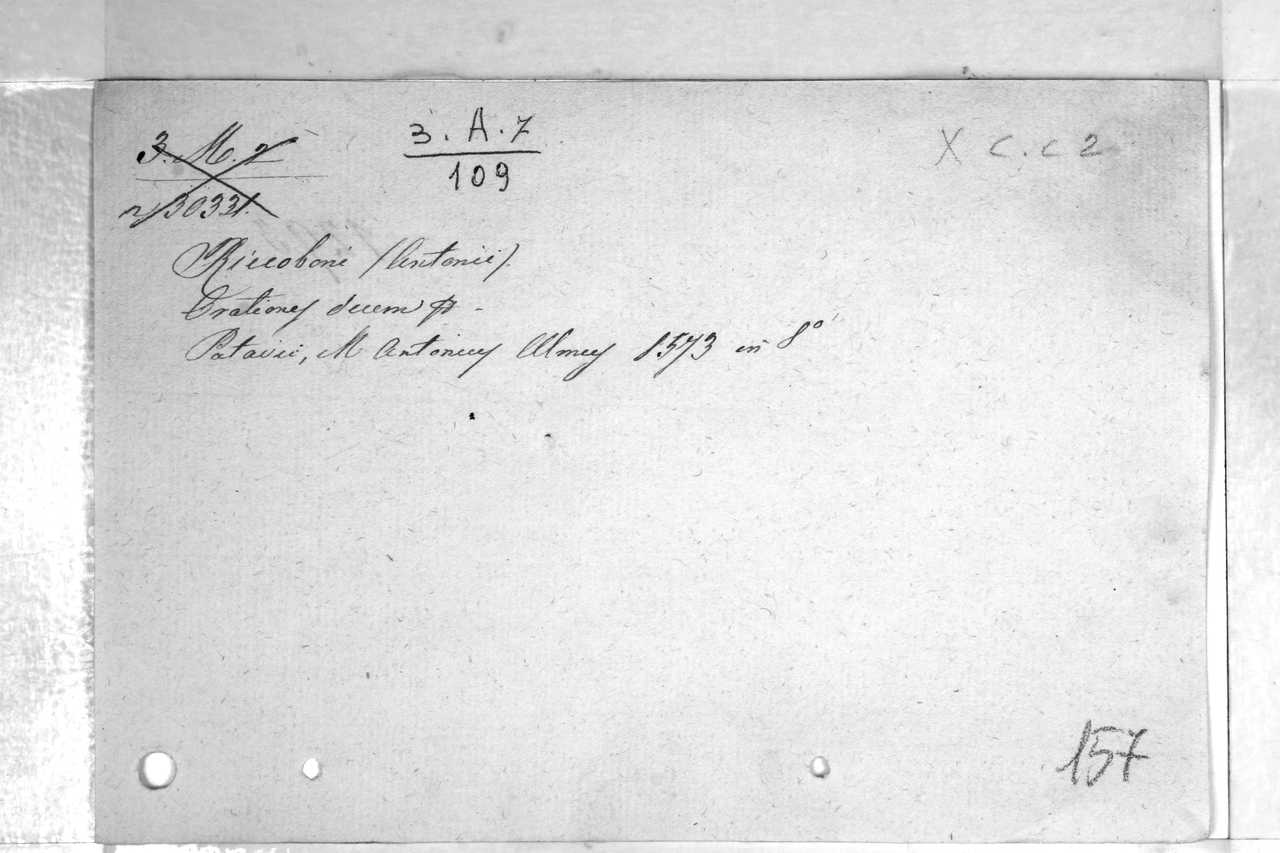 3. M. 2
n) 3033.
3. A. 7
109
X C. C 2
Riccoboni (Antonii).
Orationes decem
Patavii, M Antonius Ulmus 1573 in 8°
157